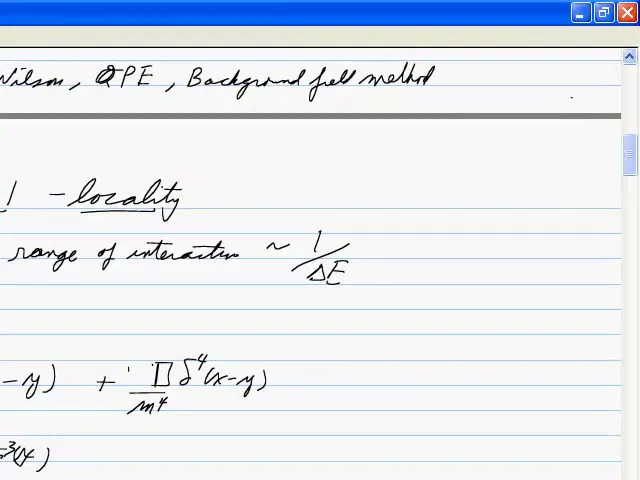 Wilson, OPE, Background field method
1 - locality
range of interaction ~ 1/ΔE
- y) + □/m⁴ δ⁴(x-y)
³(x)